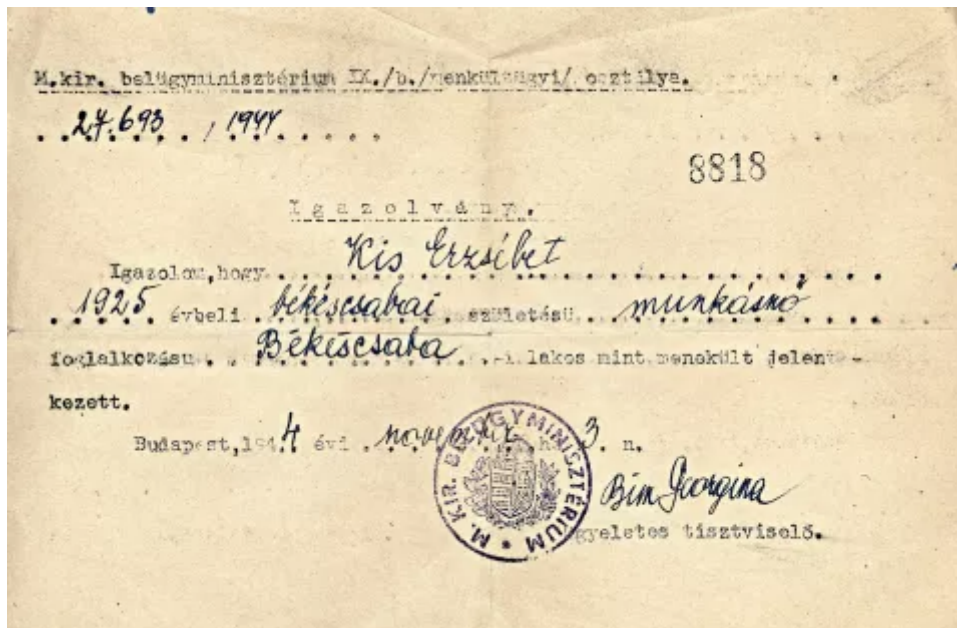 M.kir. belügyminisztérium IX./b./menkülzügyi/ osztálya.
27.693 , 1944
8818
Igazolvány.
Igazolom, hogy Kis Erzsébet
1925 évbeli békéscsabai születésü munkásnő
foglalkozásu Békéscsaba -i lakos mint menekült jelent-
kezett.
Budapest, 1944 évi november hó 3. n.
M. KIR. BELÜGYMINISZTÉRIUM
Georgina
ügyeletes tisztviselő.